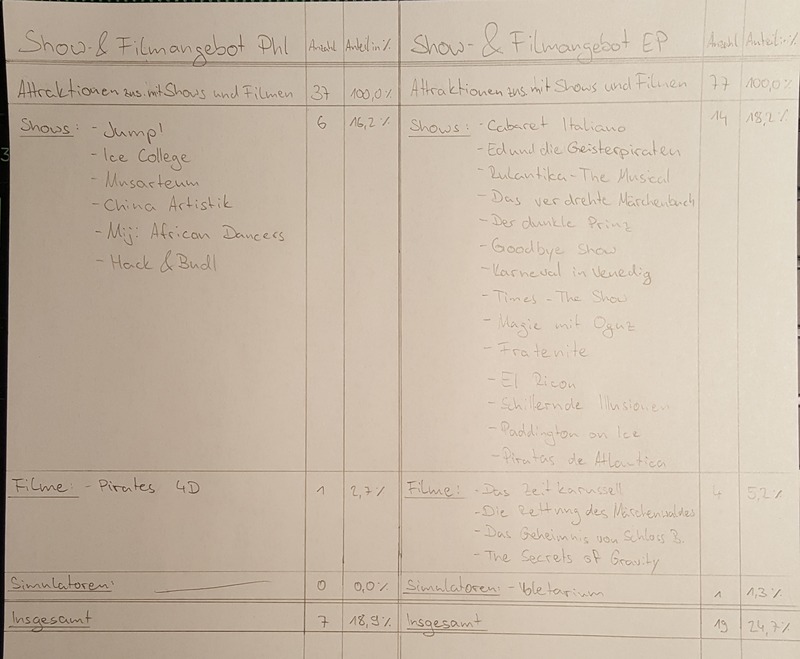 Show- & Filmangebot Phl Anzahl Anteil in %
Attraktionen zus. mit Shows und Filmen 37 100,0%
Shows: - Jump! 6 16,2%
- Ice College
- Musarteum
- China Artistik
- Miji African Dancers
- Hack & Budl
Filme: - Pirates 4D 1 2,7%
Simulatoren: 0 0,0%
Insgesamt 7 18,9%
Show- & Filmangebot EP Anzahl Anteil in %
Attraktionen zus. mit Shows und Filmen 77 100,0%
Shows: - Cabaret Italiano 14 18,2%
- Ed und die Geisterpiraten
- Rulantika - The Musical
- Das verdrehte Märchenbuch
- Der dunkle Prinz
- Goodbye Show
- Karneval in Venedig
- Times - The Show
- Magie mit Oguz
- Fratenite
- El Ricon
- Schillernde Illusionen
- Paddington on Ice
- Piratas de Atlantica
Filme: - Das Zeitkarussell 4 5,2%
- Die Rettung des Märchenwaldes
- Das Geheimnis von Schloss B.
- The Secrets of Gravity
Simulatoren: - Voletarium 1 1,3%
Insgesamt 19 24,7%